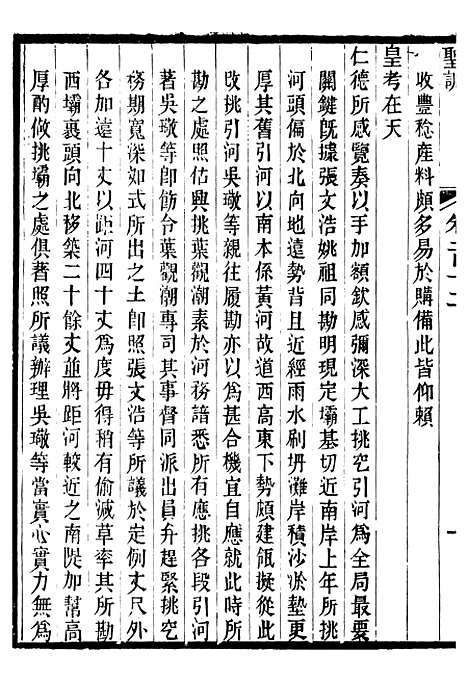 聖訓
收豐稔產料頗多易於購備此皆仰賴
皇考在天
仁德所感覽奏以手加額欽感彌深大工挑空引河為全局最要
關鍵旣據張文浩姚祖同勘明現定壩基切近南岸上年所挑
河頭偏於北向地遠勢背且節經雨水刷坍灘岸積沙淤墊更
厚其舊引河以南本係黃河故道西高東下勢頗建瓴擬從此
改挑引河吳璥等親往履勘亦以為甚合機宜自應就此時所
勘之處照估興挑葉觀潮素於河務諳悉所有應挑各段引河
著吳璥等卽飭令葉觀潮專司其事督同派出員弁趕緊挑空
務期寬深如式所出之土卽照張文浩等所議於定例丈尺外
各加遠十丈以距河四十丈為度毋得稍有偷減草率其所勘
西壩裹頭向北移築二十餘丈並將距河較近之南隄加幫高
厚酌做挑壩之處俱著照所議辦理吳璥等當實心實力無為